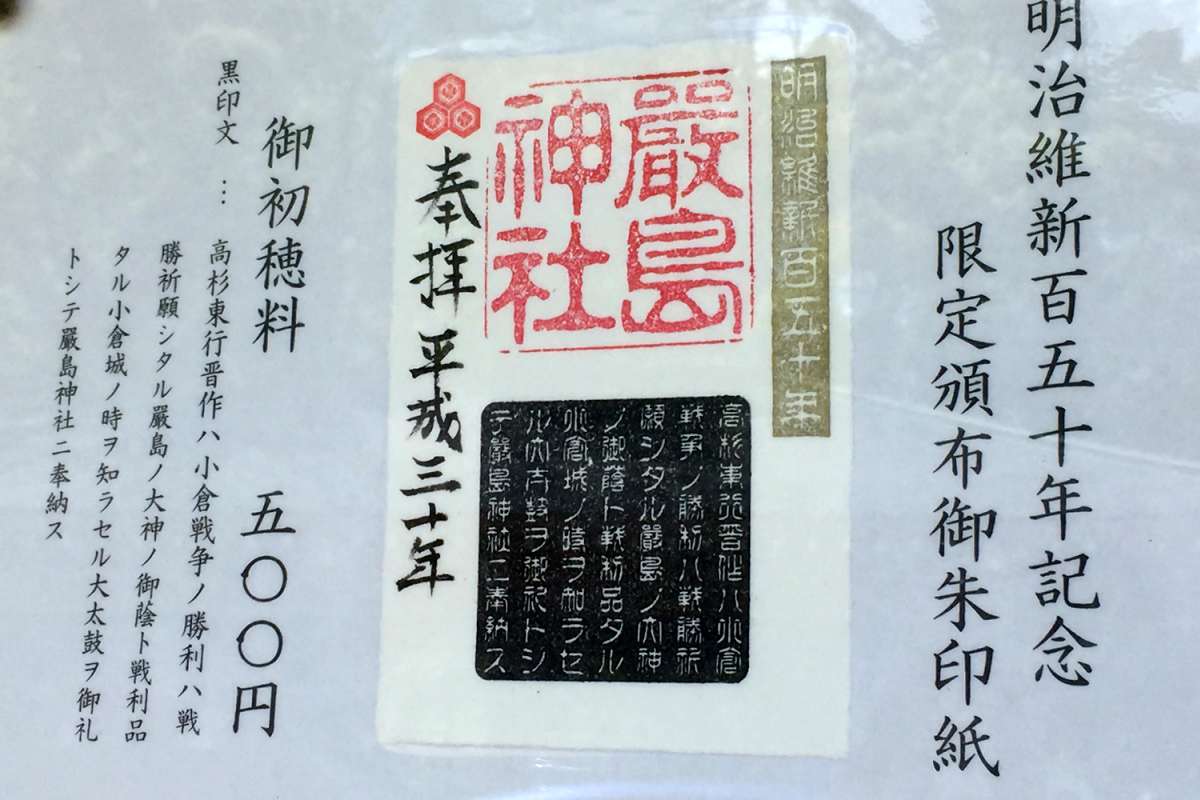 明治維新百五十年記念
限定頒布御朱印紙
明治維新百五十年
嚴島
神社
高杉東行晋作ハ小倉
戦争ノ勝利ハ戦勝祈
願シタル嚴島ノ大神
ノ御蔭ト戦利品タル
小倉城ノ時ヲ知ラセ
ル大太鼓ヲ御礼トシ
テ嚴島神社ニ奉納ス
奉拝 平成三十年
御初穂料 五〇〇円
黒印文 … 高杉東行晋作ハ小倉戦争ノ勝利ハ戦
勝祈願シタル嚴島ノ大神ノ御蔭ト戦利品
タル小倉城ノ時ヲ知ラセル大太鼓ヲ御礼
トシテ嚴島神社ニ奉納ス